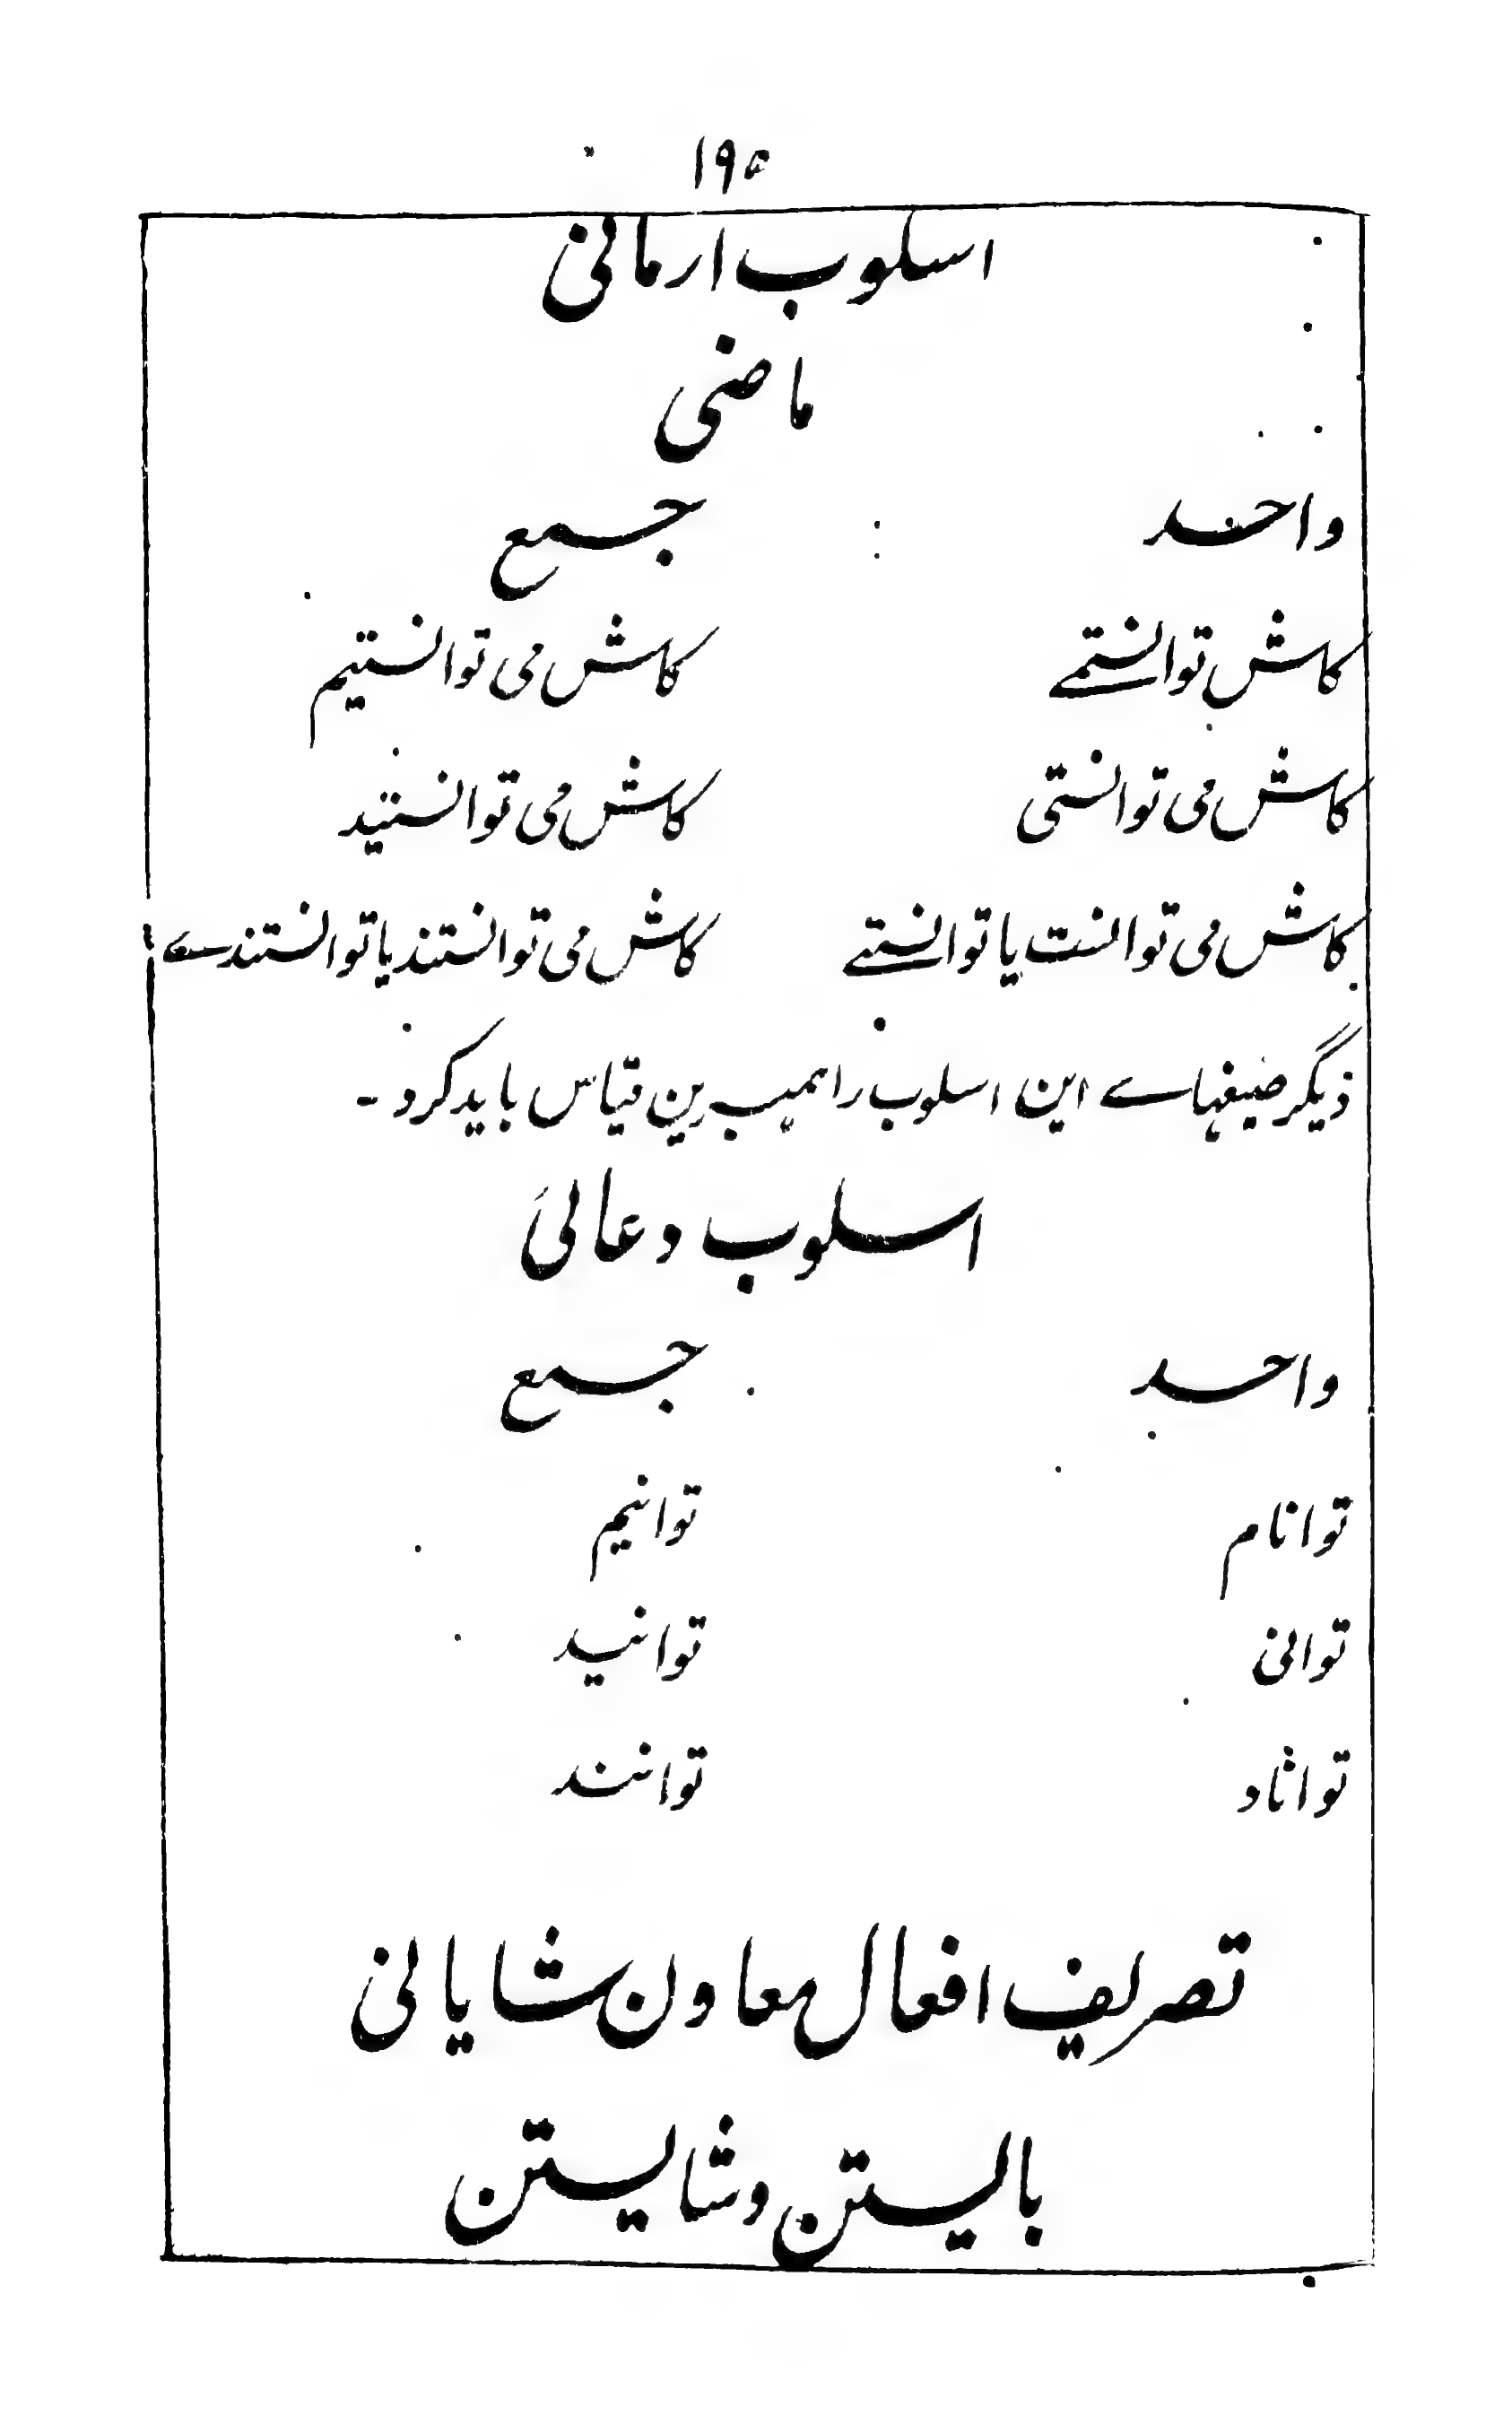 ۱۹۵
اسلوب ارمانی
ماضی
واحد جمع
کاش توانستمے کاش می توانستیم
کاش می توانستی کاش می توانستید
کاش می توانست یا توانستے کاش می توانستند یا توانستندے
دیگر صیغہاے این اسلوب را ہمبرین قیاس باید کرد ۔
اسلوب دعائی
واحد جمع
توانام توانیم
توانی توانید
تواناد توانند
تصریف افعال معاون شایانی
بایستن و شایستن